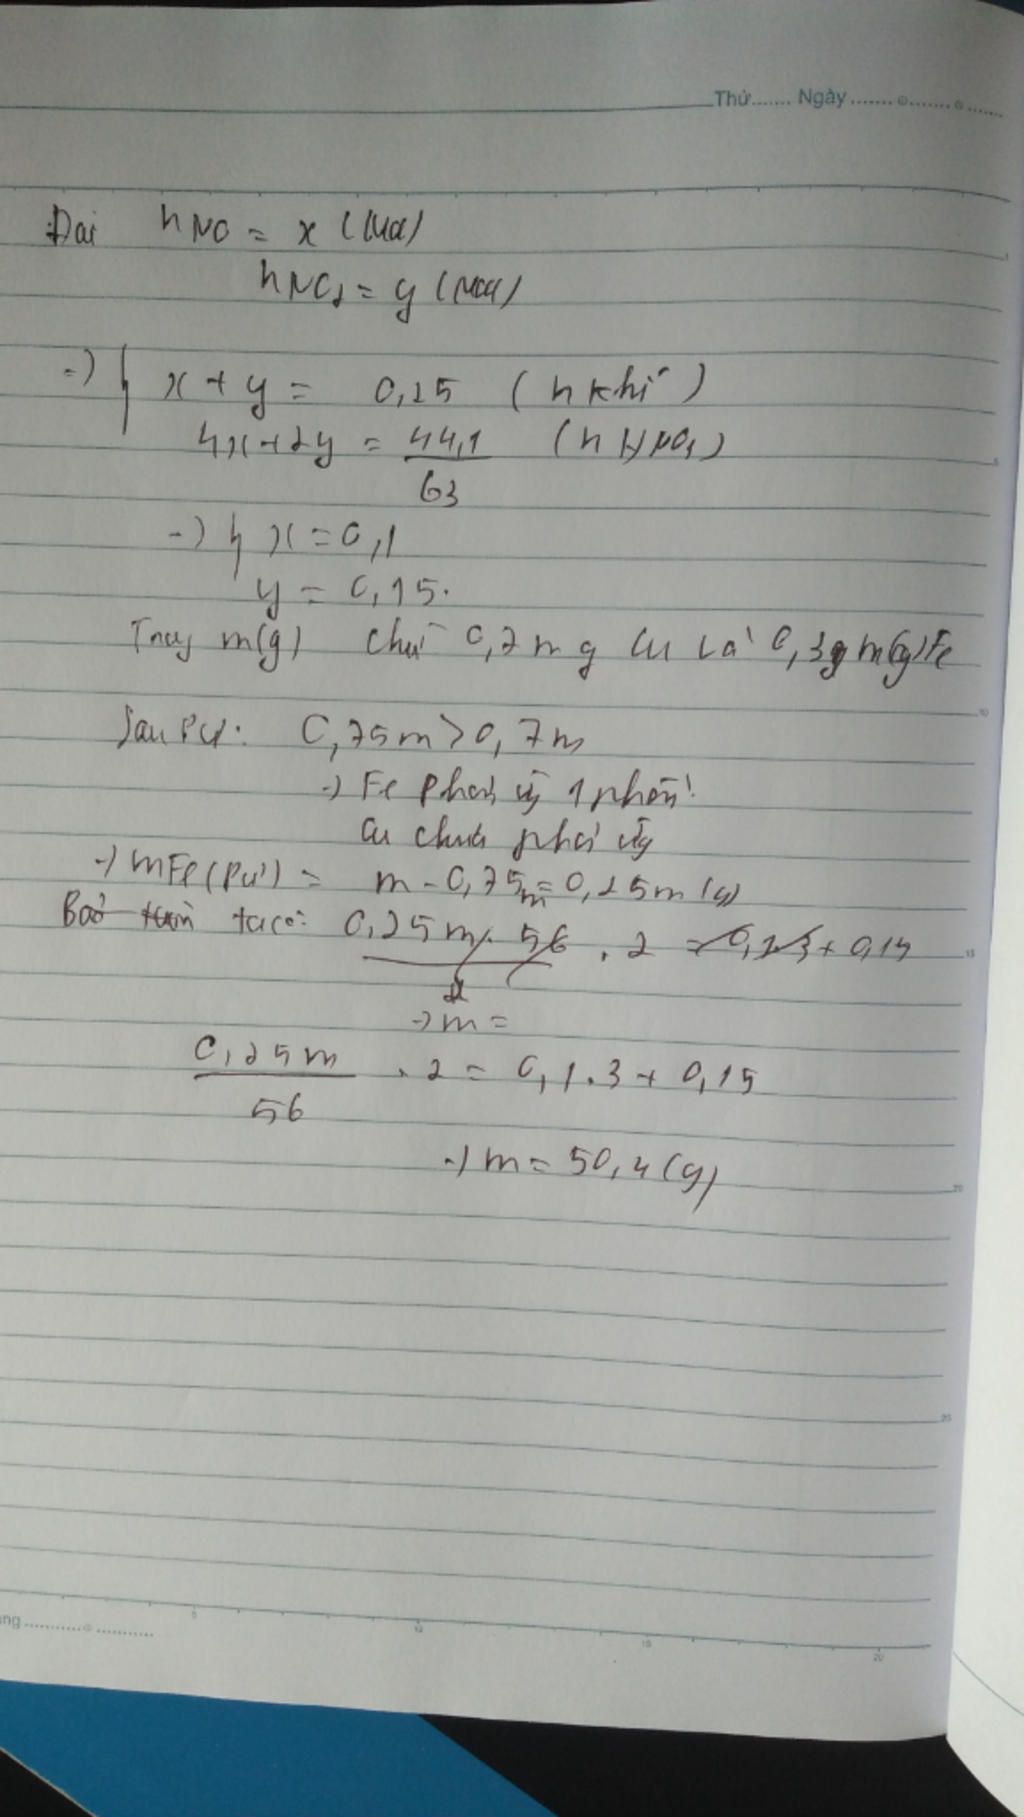 Thứ....... Ngày.......
Đặt nNO = x (mol)
nNO2 = y (mol)
=) { x + y = 0,25 (n khí)
4x + 2y = 44,1 (n HNO3)
63
-) { x = 0,1
y = 0,15.
m(g) 0,7m g Cu và 0,3 m(g) Fe
Sau PƯ: 0,75m > 0,7m
-) Fe phản ứng 1 phần
Cu chưa phản ứng
-) mFe(pư) = m - 0,75m = 0,25m (g)
Bảo toàn ta có: 0,25m . 56 . 2 = 0,1.3 + 0,15
-) m =
0,25m . 2 = 0,1.3 + 0,15
56
-) m = 50,4 (g)